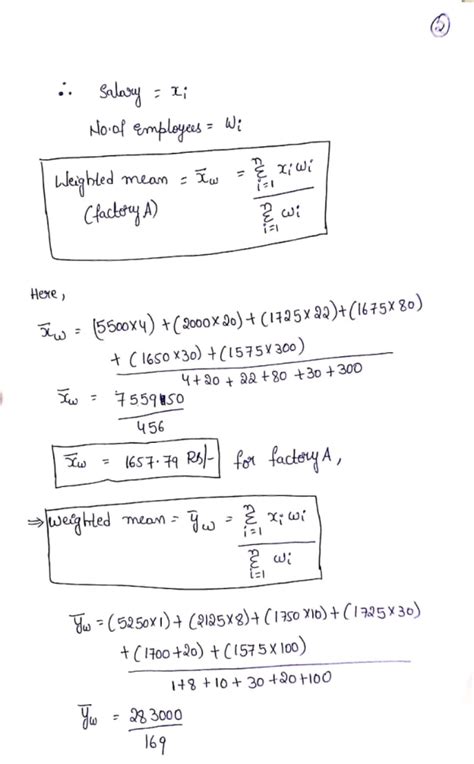 ②
∴ Salary = xi
No. of employees = Wi
Weighted mean = x̄w = Σ(i=1 to n) xi wi / Σ(i=1 to n) wi
(factory A)
Here,
x̄w = (5500×4) + (2000×20) + (1725×22) + (1675×80)
+ (1650×30) + (1575×300)
4 + 20 + 22 + 80 + 30 + 300
x̄w = 755950
456
x̄w = 1657.79 Rs/- for factory A,
⇒ Weighted mean = ȳw = Σ(i=1 to n) xi wi / Σ(i=1 to n) wi
ȳw = (5250×1) + (2125×8) + (1750×10) + (1725×30)
+ (1700+20) + (1575×100)
1 + 8 + 10 + 30 + 20 + 100
ȳw = 283000
169